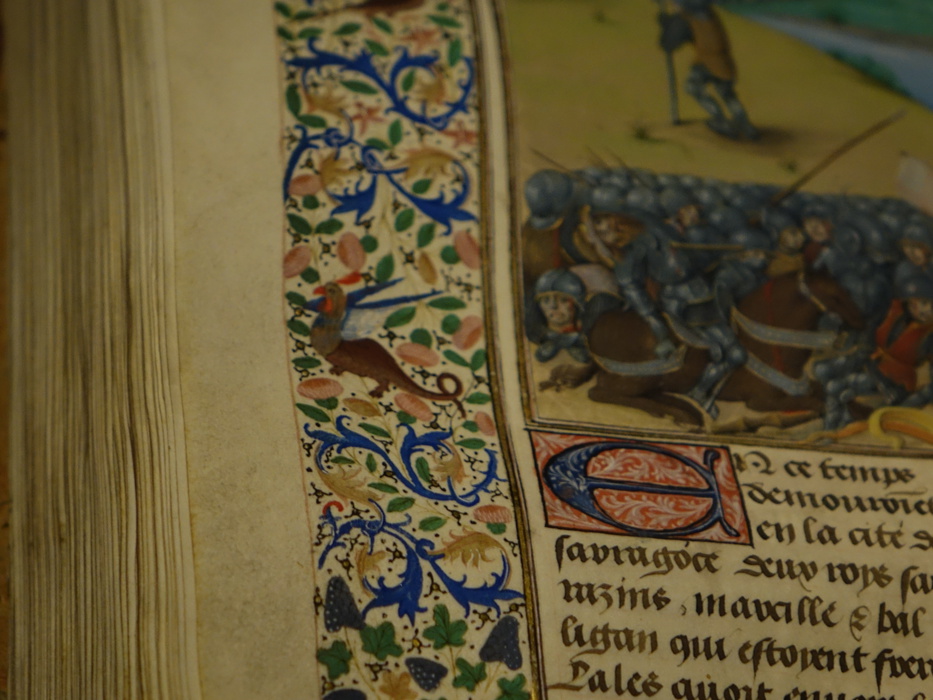 En ce temps
demouroiē
en la cité d
sarragoce deux roys sa
razins, marcille & bal
ligan qui estoyent frer